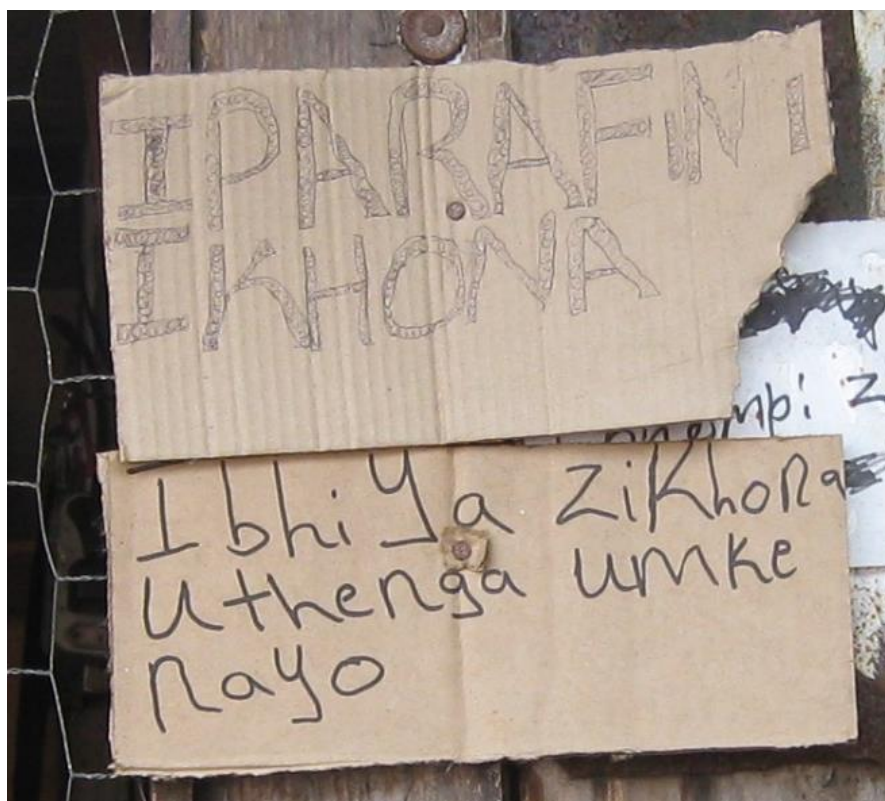 IPARAFINI
IKHONA
Ibhiya zikhona
uthenga umke
nayo